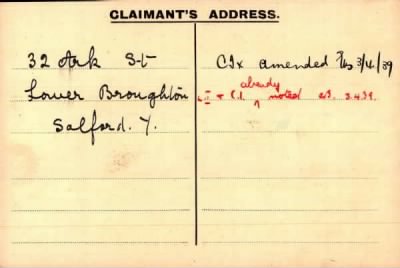 CLAIMANT'S ADDRESS.
32 Ark St
Lower Broughton
Salford. 7.
CIx amended 3/4/39
already
& C.I. noted 3.4.39.